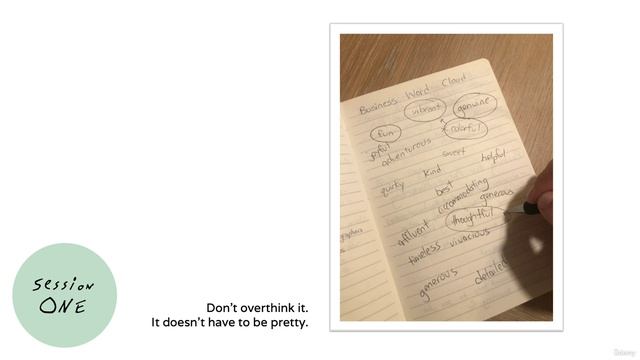 Business Word Cloud
vibrant
genuine
fun
colorful
joyful
adventurous
sweet
helpful
kind
quirky
best
accommodating
generous
thoughtful
affluent
timeless
vivacious
generous
detailed
Session
ONE
Don't overthink it.
It doesn't have to be pretty.
Udemy